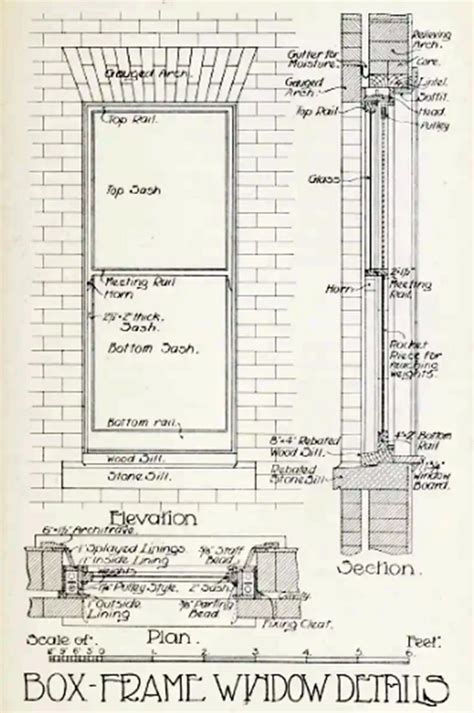 Gauged Arch.
Top Rail.
Top Sash
Meeting Rail
Horn
thick.
Sash.
Bottom Sash.
Bottom rail.
Wood Sill.
Stone Sill.
Elevation
Gutter for
Moisture.
Gauged
Arch.
Top Rail
Relieving
Arch.
Core.
Lintel.
Soffit.
Head.
Pulley
Glass
Horn
Meeting
Rail.
Pocket
Piece for
reaching
weights.
8"×4" Rebated
Wood Sill.
Rebated
Stone Sill
4"×2" Bottom
Rail
Window
Board.
Section.
6"×1½" Architrave
1" Splayed Linings
1" Inside
Lining
Weights
Pulley Style.
⅝" Staff
Bead
2" Sash
1" Outside
Lining
⅜" Parting
Bead
Fixing Cleat.
Plan.
Scale of.
1 2 3 4 5 6
Feet.
BOX-FRAME WINDOW DETAILS